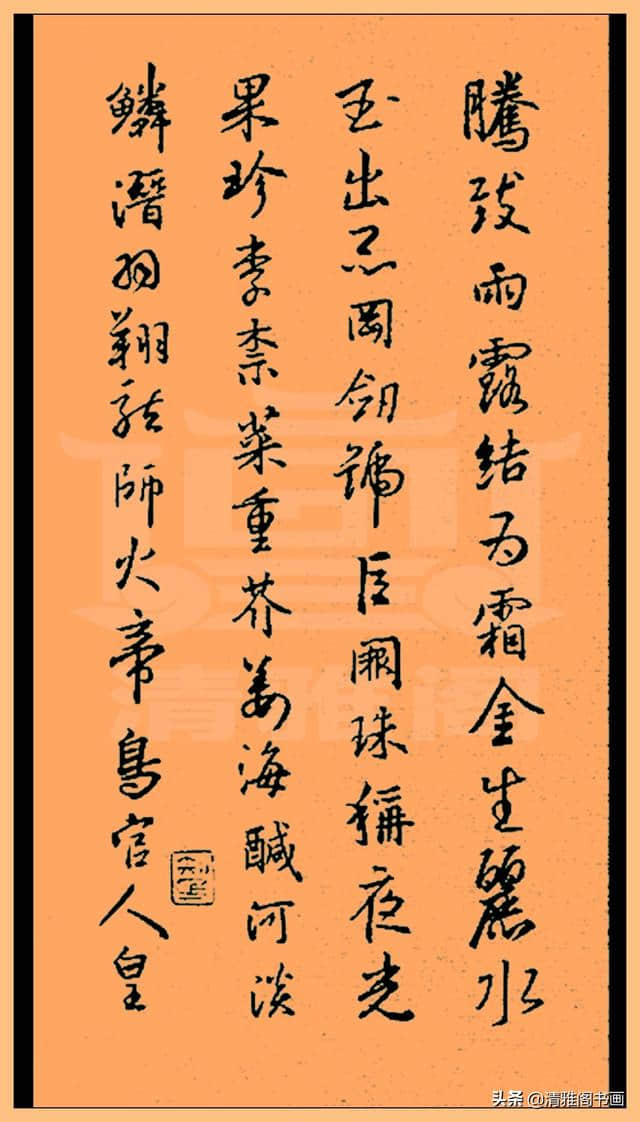 騰致雨露結為霜金生麗水
玉出崑岡劍號巨闕珠稱夜光
果珍李柰菜重芥姜海醎河淡
鱗潛羽翔龍師火帝鳥官人皇
清雅阁
头条 @清雅阁书画